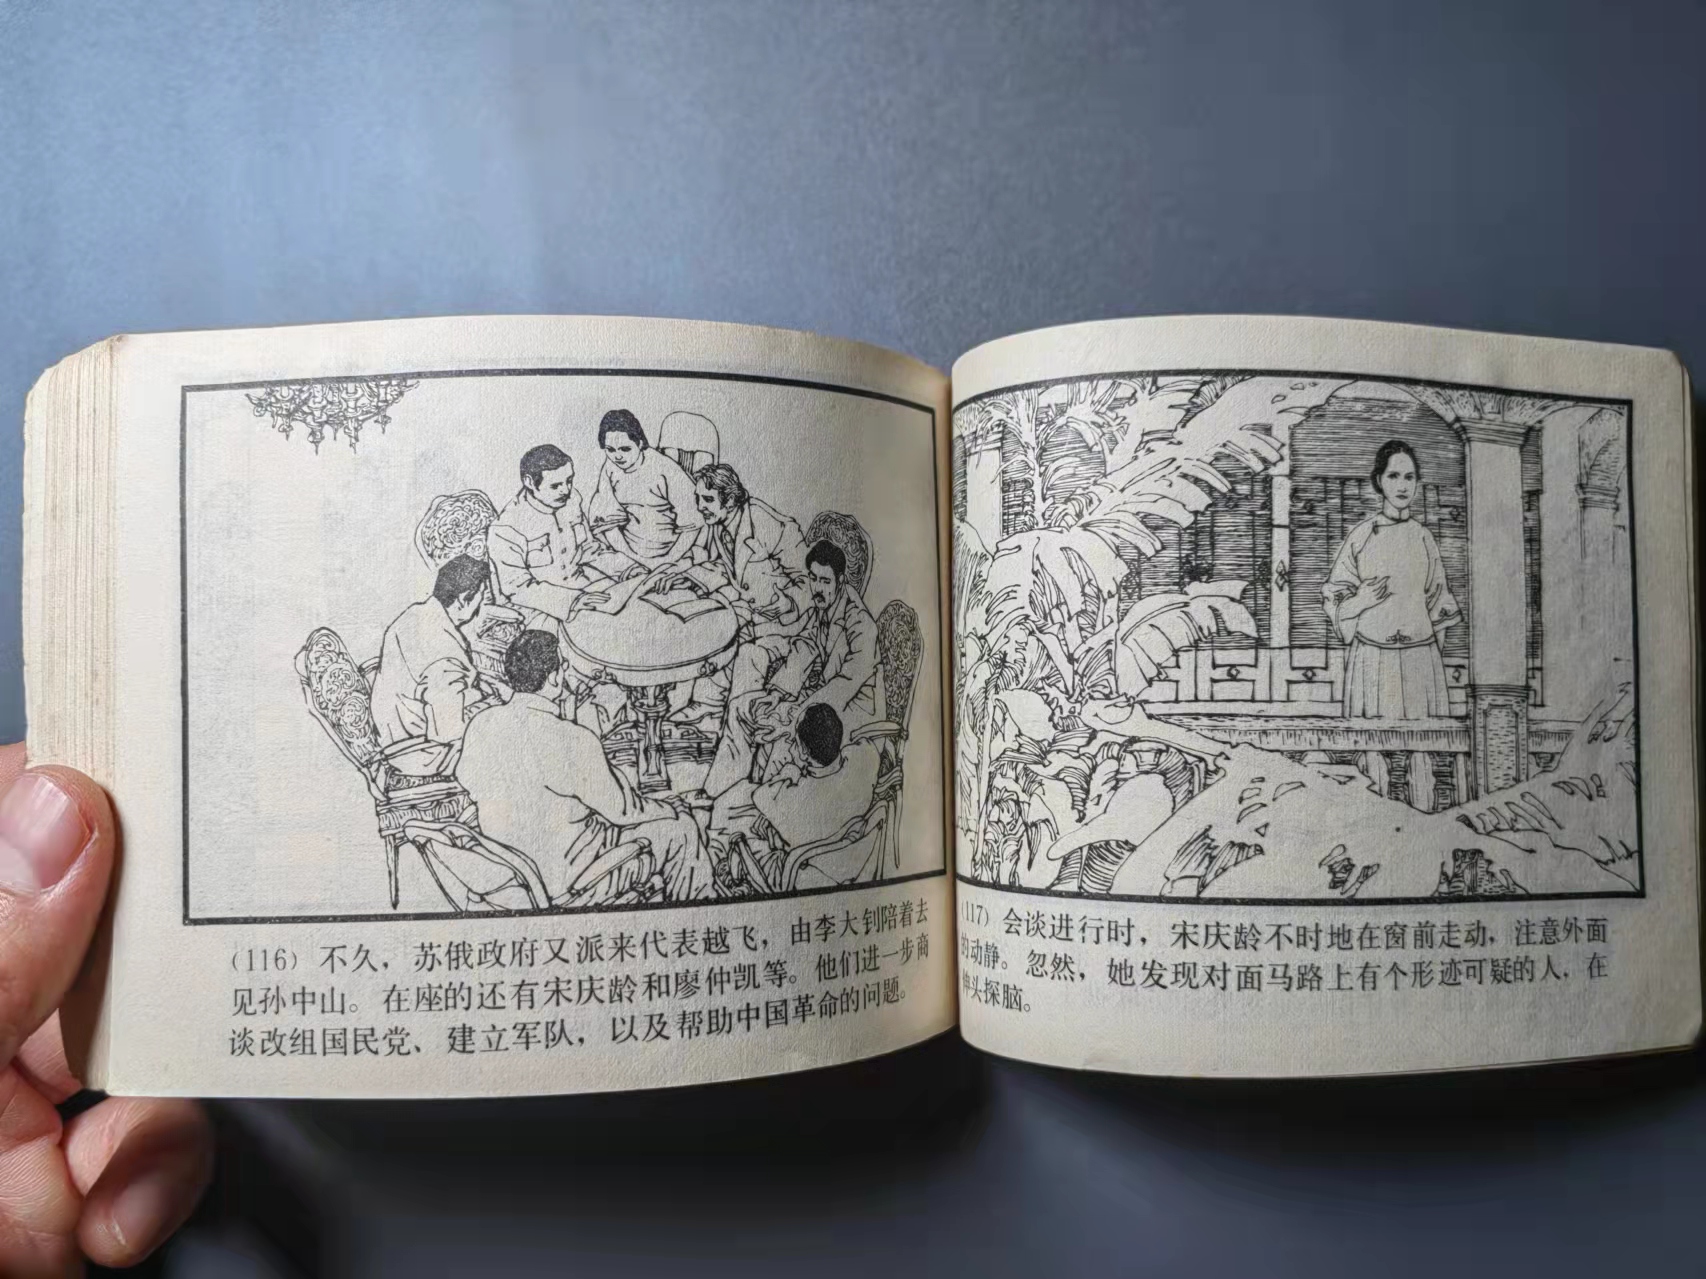 (116) 不久，苏俄政府又派来代表越飞，由李大钊陪着去
见孙中山。在座的还有宋庆龄和廖仲凯等。他们进一步商
谈改组国民党、建立军队，以及帮助中国革命的问题。
(117) 会谈进行时，宋庆龄不时地在窗前走动，注意外面
的动静。忽然，她发现对面马路上有个形迹可疑的人，在
伸头探脑。